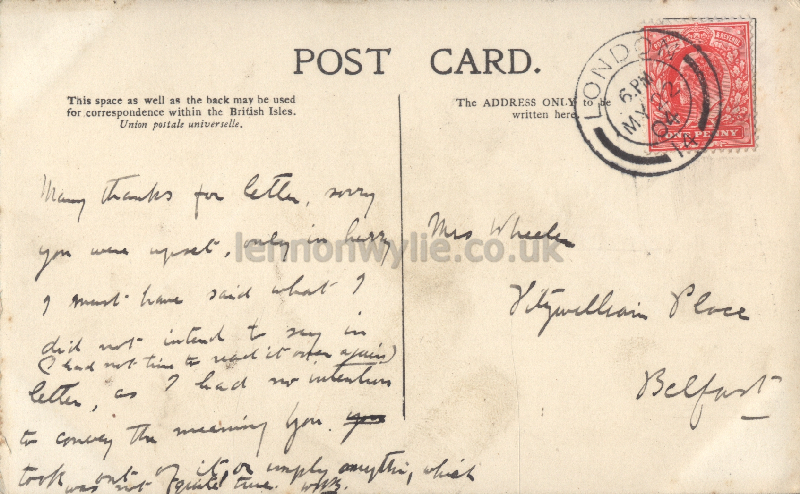 POST CARD.
This space as well as the back may be used
for correspondence within the British Isles.
Union postale universelle.
The ADDRESS ONLY to be
written here.
LONDON
6.PM
MY 2
04
ONE PENNY
Many thanks for letter, sorry
you were upset, only in hurry
I must have said what I
did not intend to say in
(I had not time to read it over again)
letter, as I had no intention
to convey the meaning you
took out of it, or imply anything, which
was not quite true.
Mrs Wheeler
Fitzwilliam Place
Belfast
lennonwylie.co.uk